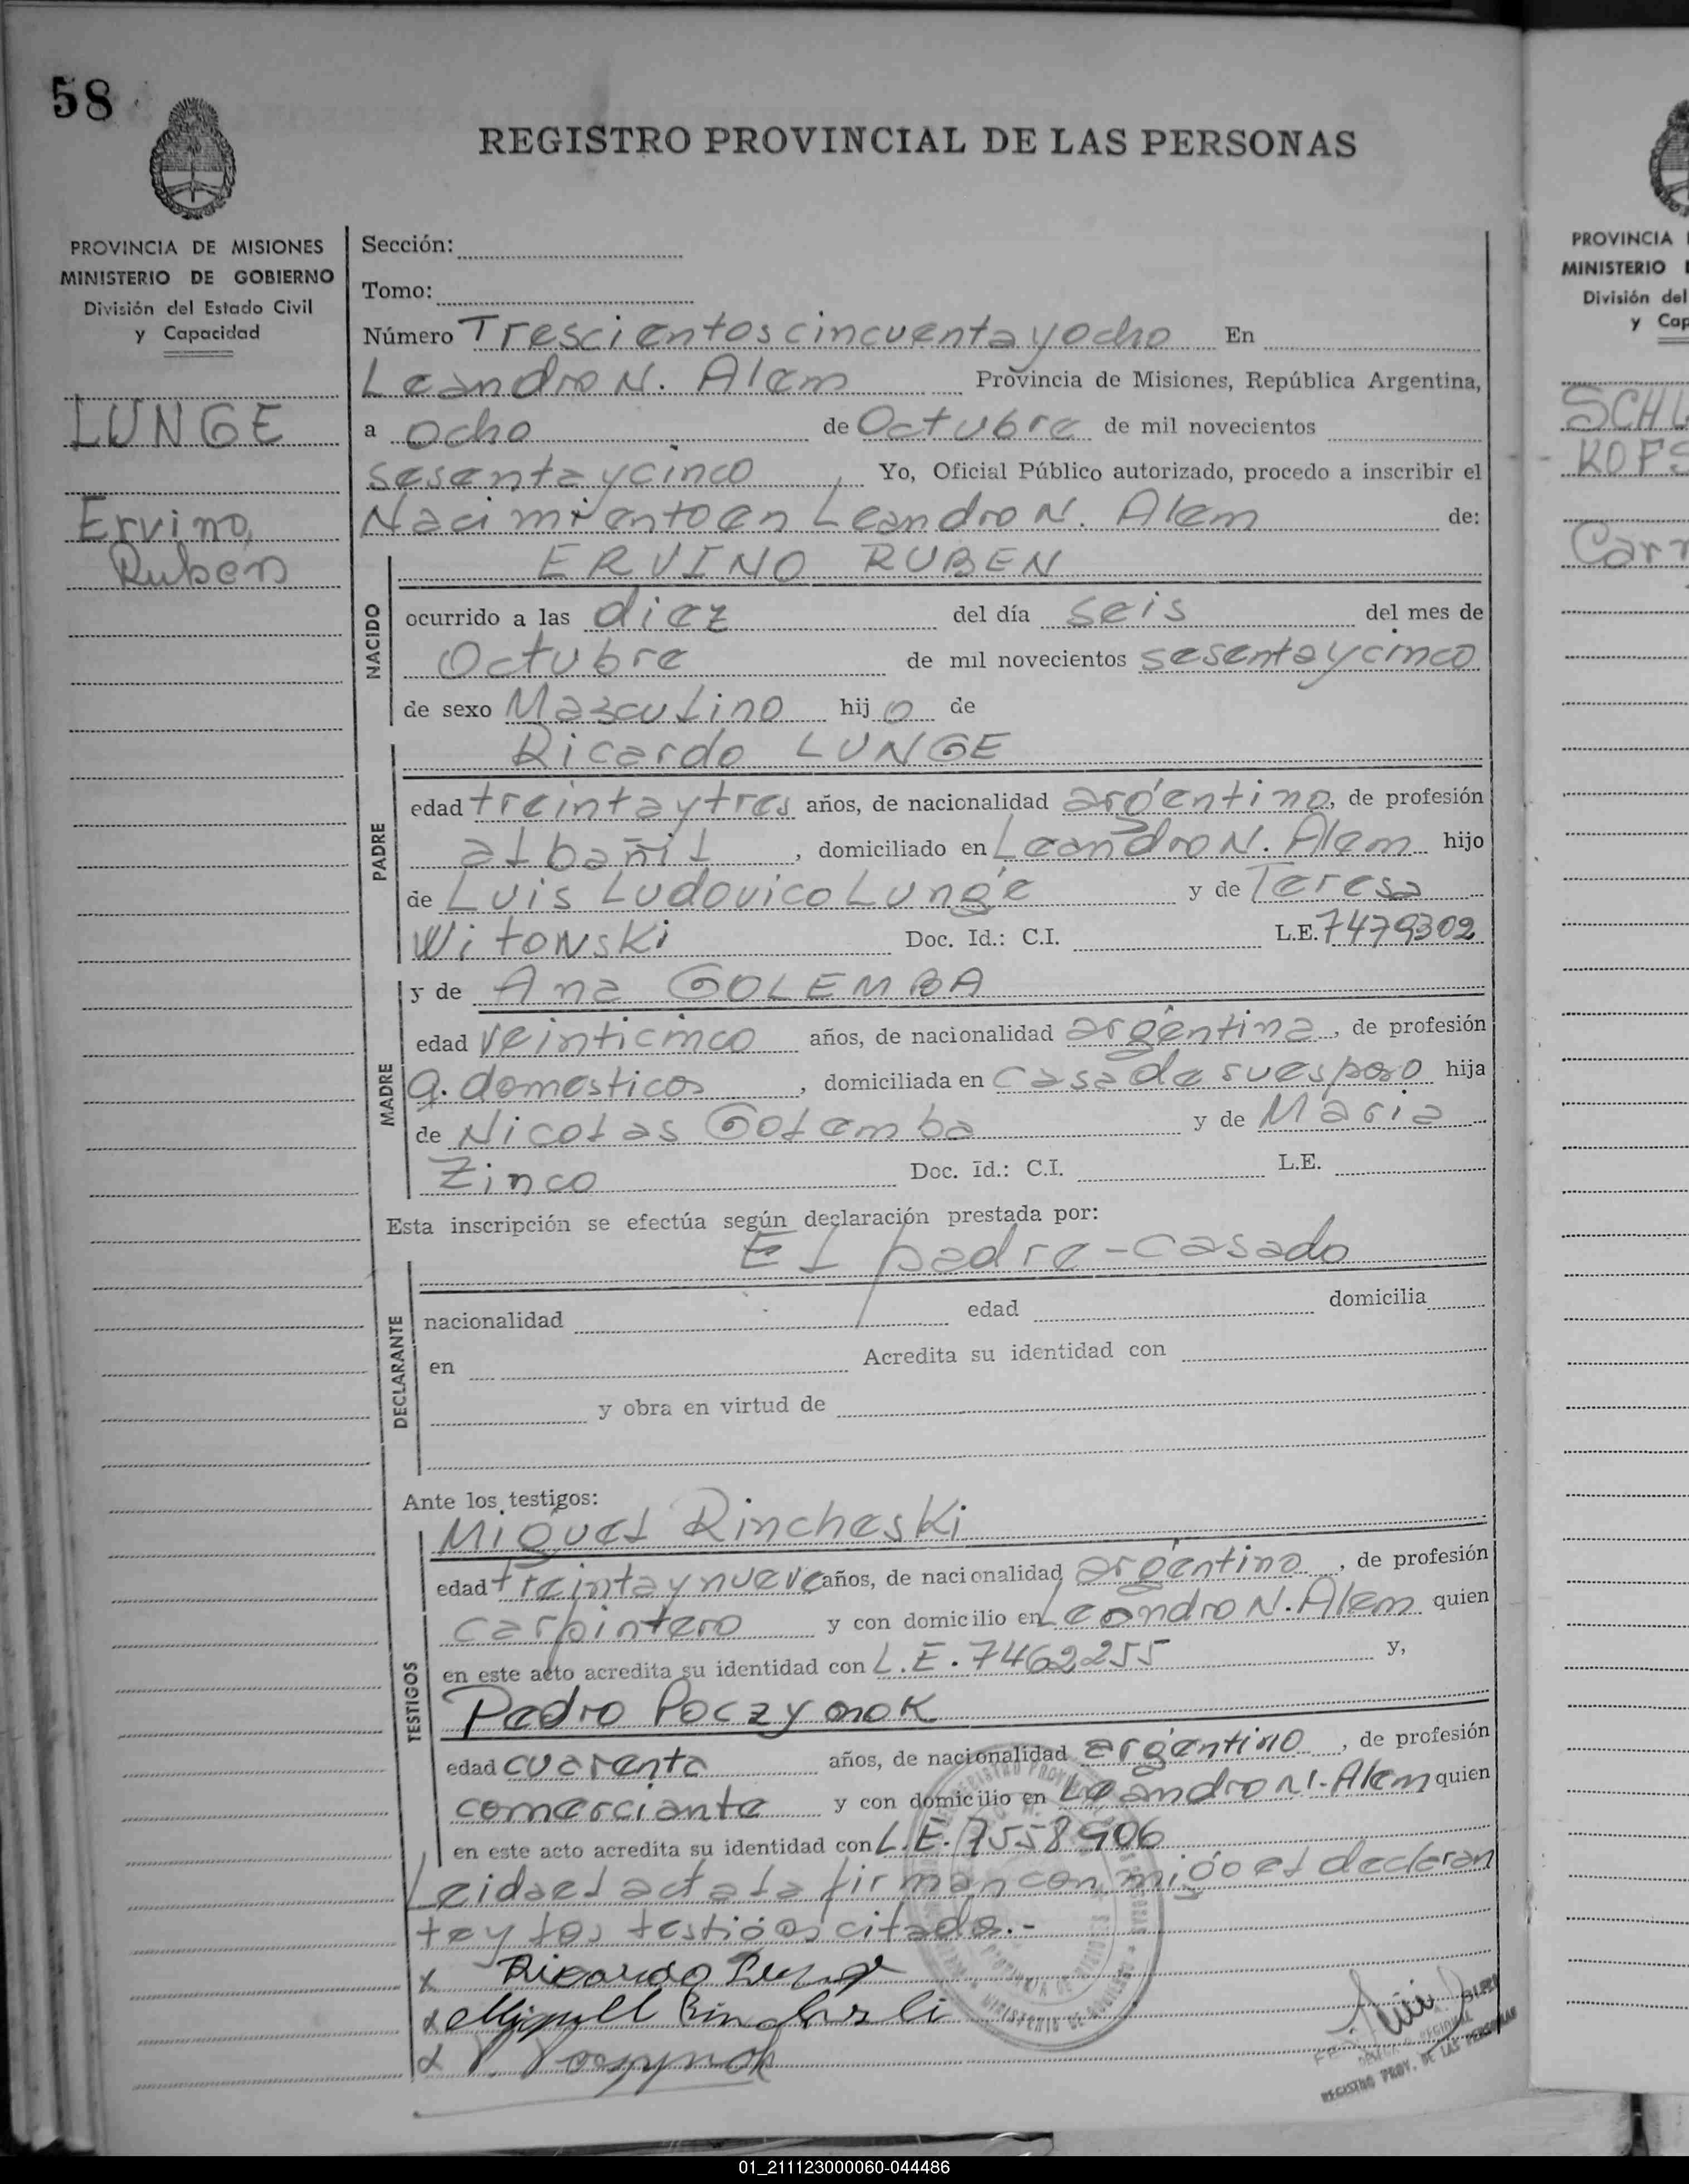 58
REGISTRO PROVINCIAL DE LAS PERSONAS
PROVINCIA DE MISIONES
MINISTERIO DE GOBIERNO
División del Estado Civil
y Capacidad
LUNGE
Ervino
Ruben
Sección:
Tomo:
Número Trescientos cincuenta y ocho En
Leandro N. Alem Provincia de Misiones, República Argentina,
a ocho de Octubre de mil novecientos
sesenta y cinco Yo, Oficial Público autorizado, procedo a inscribir el
Nacimiento en Leandro N. Alem de:
NACIDO
ERVINO RUBEN
ocurrido a las diez del día seis del mes de
Octubre de mil novecientos sesenta y cinco
de sexo Masculino hijo de
PADRE
Ricardo LUNGE
edad treinta y tres años, de nacionalidad argentino, de profesión
albañil, domiciliado en Leandro N. Alem hijo
de Luis Ludovico Lunge y de Teresa
Witonski Doc. Id.: C.I. L.E. 7479302
MADRE
y de Ana GOLEMBA
edad veinticinco años, de nacionalidad argentina, de profesión
q. domesticos, domiciliada en casa de su esposo hija
de Nicolas Golemba y de Maria
Zinco Doc. Id.: C.I. L.E.
Esta inscripción se efectúa según declaración prestada por:
DECLARANTE
El padre-casado
nacionalidad edad domicilia
en Acredita su identidad con
y obra en virtud de
Ante los testigos:
TESTIGOS
Miguel Rincheski
edad treinta y nueve años, de nacionalidad argentino, de profesión
carpintero y con domicilio en Leandro N. Alem quien
en este acto acredita su identidad con L.E. 7462255 y,
Pedro Poczynok
edad cuarenta años, de nacionalidad argentino, de profesión
comerciante y con domicilio en Leandro N. Alem quien
en este acto acredita su identidad con L.E. 7558906
Leida el acta la firman con migo el declaran
te y los testigos citados.-
x Ricardo Lunge
x Miguell Rincheski
x P. Poczynok
REGIONAL
REGISTRO PROV. DE LAS PERSONAS
PROVINCIA
MINISTERIO
División del
y Cap
SCHL
KOFS
Carm
01_211123000060-044486